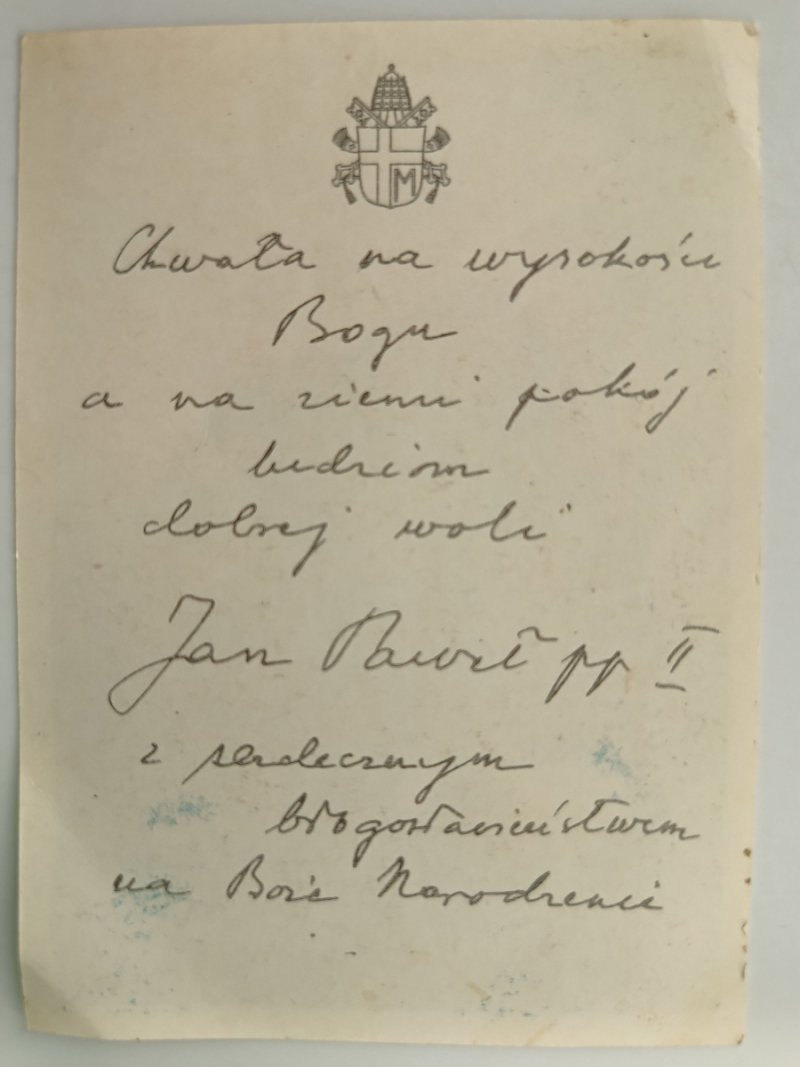 M
Chwała na wysokości
Bogu
a na ziemi pokój
ludziom
dobrej woli
Jan Paweł pp II
z serdecznym
błogosławieństwem
na Boże Narodzenie